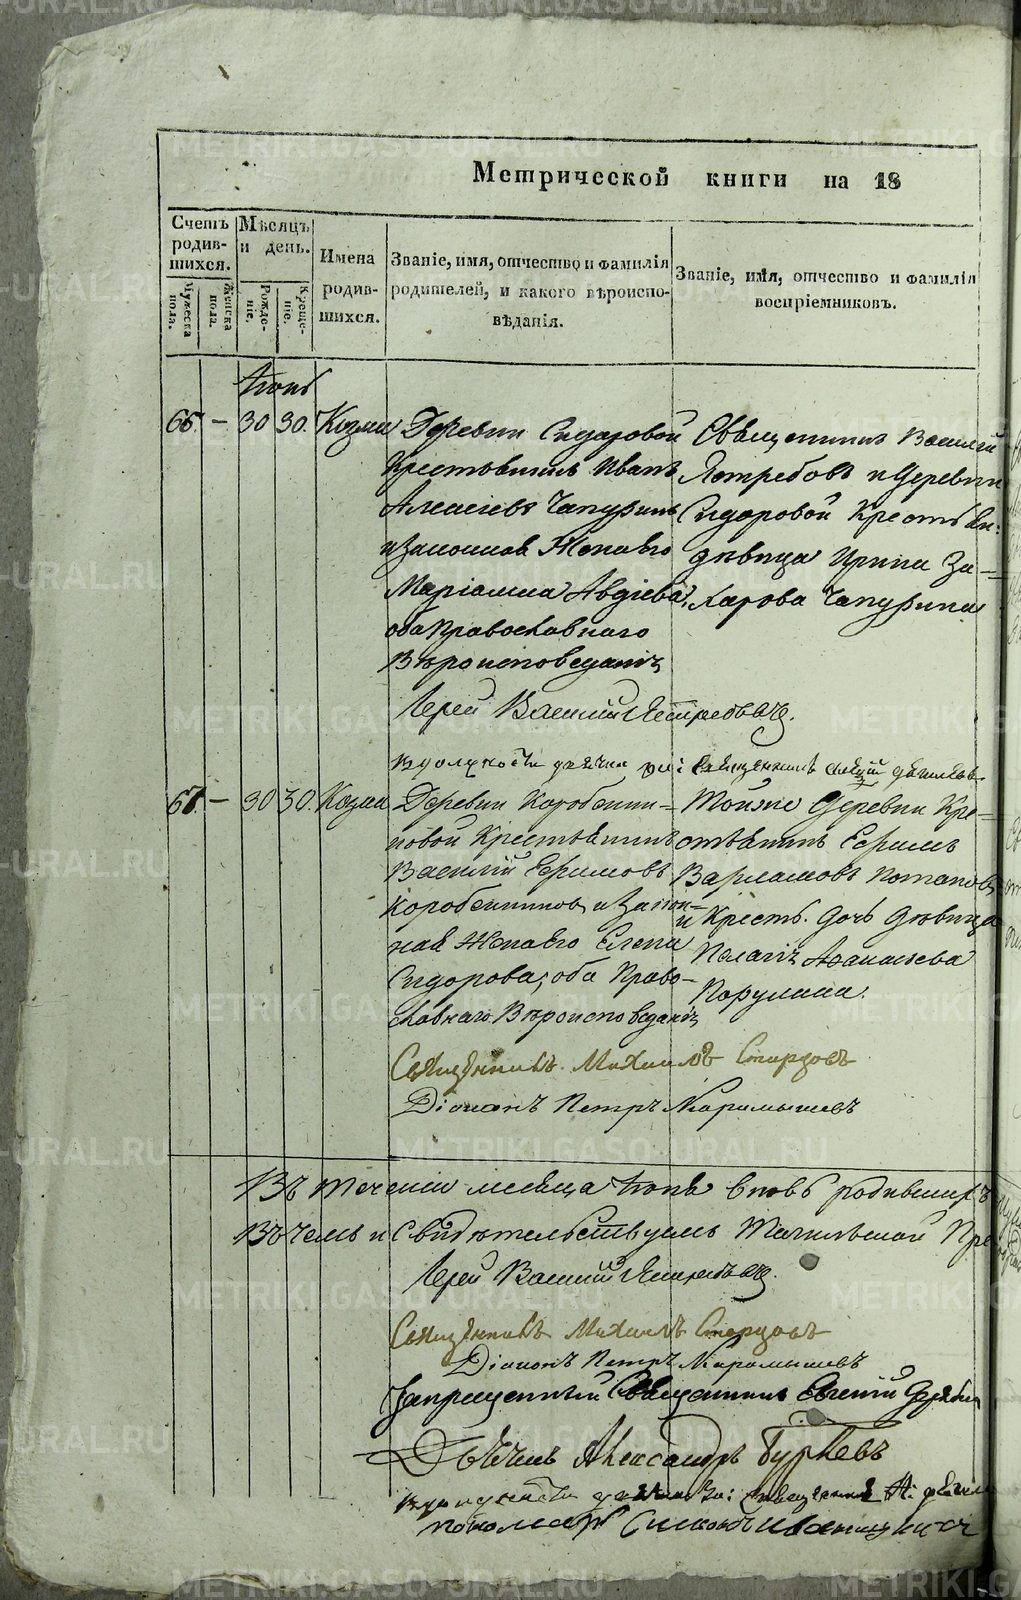 Метрической книги на 18
Счетъ родив-шихся.
Мѣсяцъ и день.
Имена родив-шихся.
Званіе, имя, отчество и фамилія родителей, и какого вѣроиспо-вѣданія.
Званіе, имя, отчество и фамилія воспріемниковъ.
Мужеска пола.
Женска пола.
Рожде-ніе.
Креще-ніе.
66. — 30 30. Козма
Деревни Сидаровой
Крестьянинъ Иванъ
Алексѣевъ Чапуринъ
и Законная Жена его
Маріамна Авдіева,
оба Православнаго
Вѣроисповеданія
Священникъ Василій
Ястребовъ и Деревни
Сидоровой Крестьян:
дѣвица Ирина За-
харова Чапурина
Іерей Василій Ястребовъ.
67. — 30 30. Козма
Деревни Коробейни-
ковой Крестьянинъ
Василій Ефимовъ
Коробейниковъ и Закон-
ная Жена его Елена
Сидорова, оба Право-
славнаго Вѣроисповеданія
Тойже Деревни Кре-
стьянинъ Ефимъ
Варламовъ Потаповъ
и Крестъ. дочь дѣвица
Пелагія Афанасьева
Священникъ Михаилъ Стерховъ
Діаконъ Петръ Карамышевъ
Въ теченіи месяца Іюня вновь родившихъ
Въ чемъ и Свидѣтельствуемъ
Іерей Василій Ястребовъ.
Священникъ Михаилъ Стерховъ
Діаконъ Петръ Карамышевъ
Запрещенный Священникъ Евгеній
Дьячекъ Александръ Гурьевъ
пономарь Симеонъ
METRIKI.GASO-URAL.RU